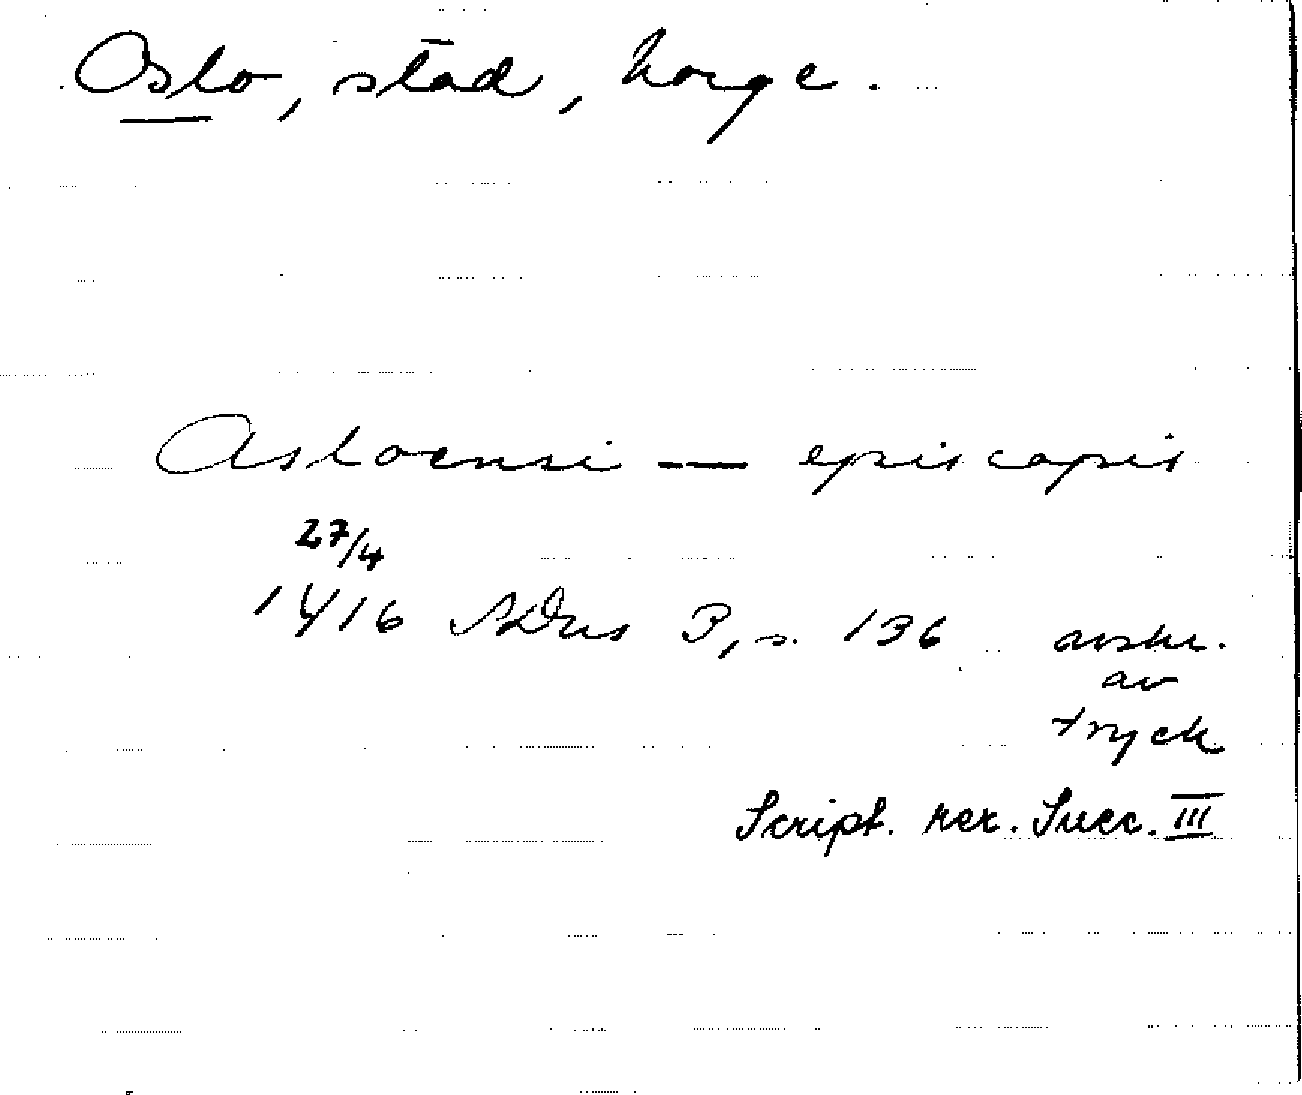 Oslo, stad, Norge.
Asloensi — episcopis
27/4
1416 SDns 3, s. 136 avskr.
av
tryck
Script. rer. Suec. III